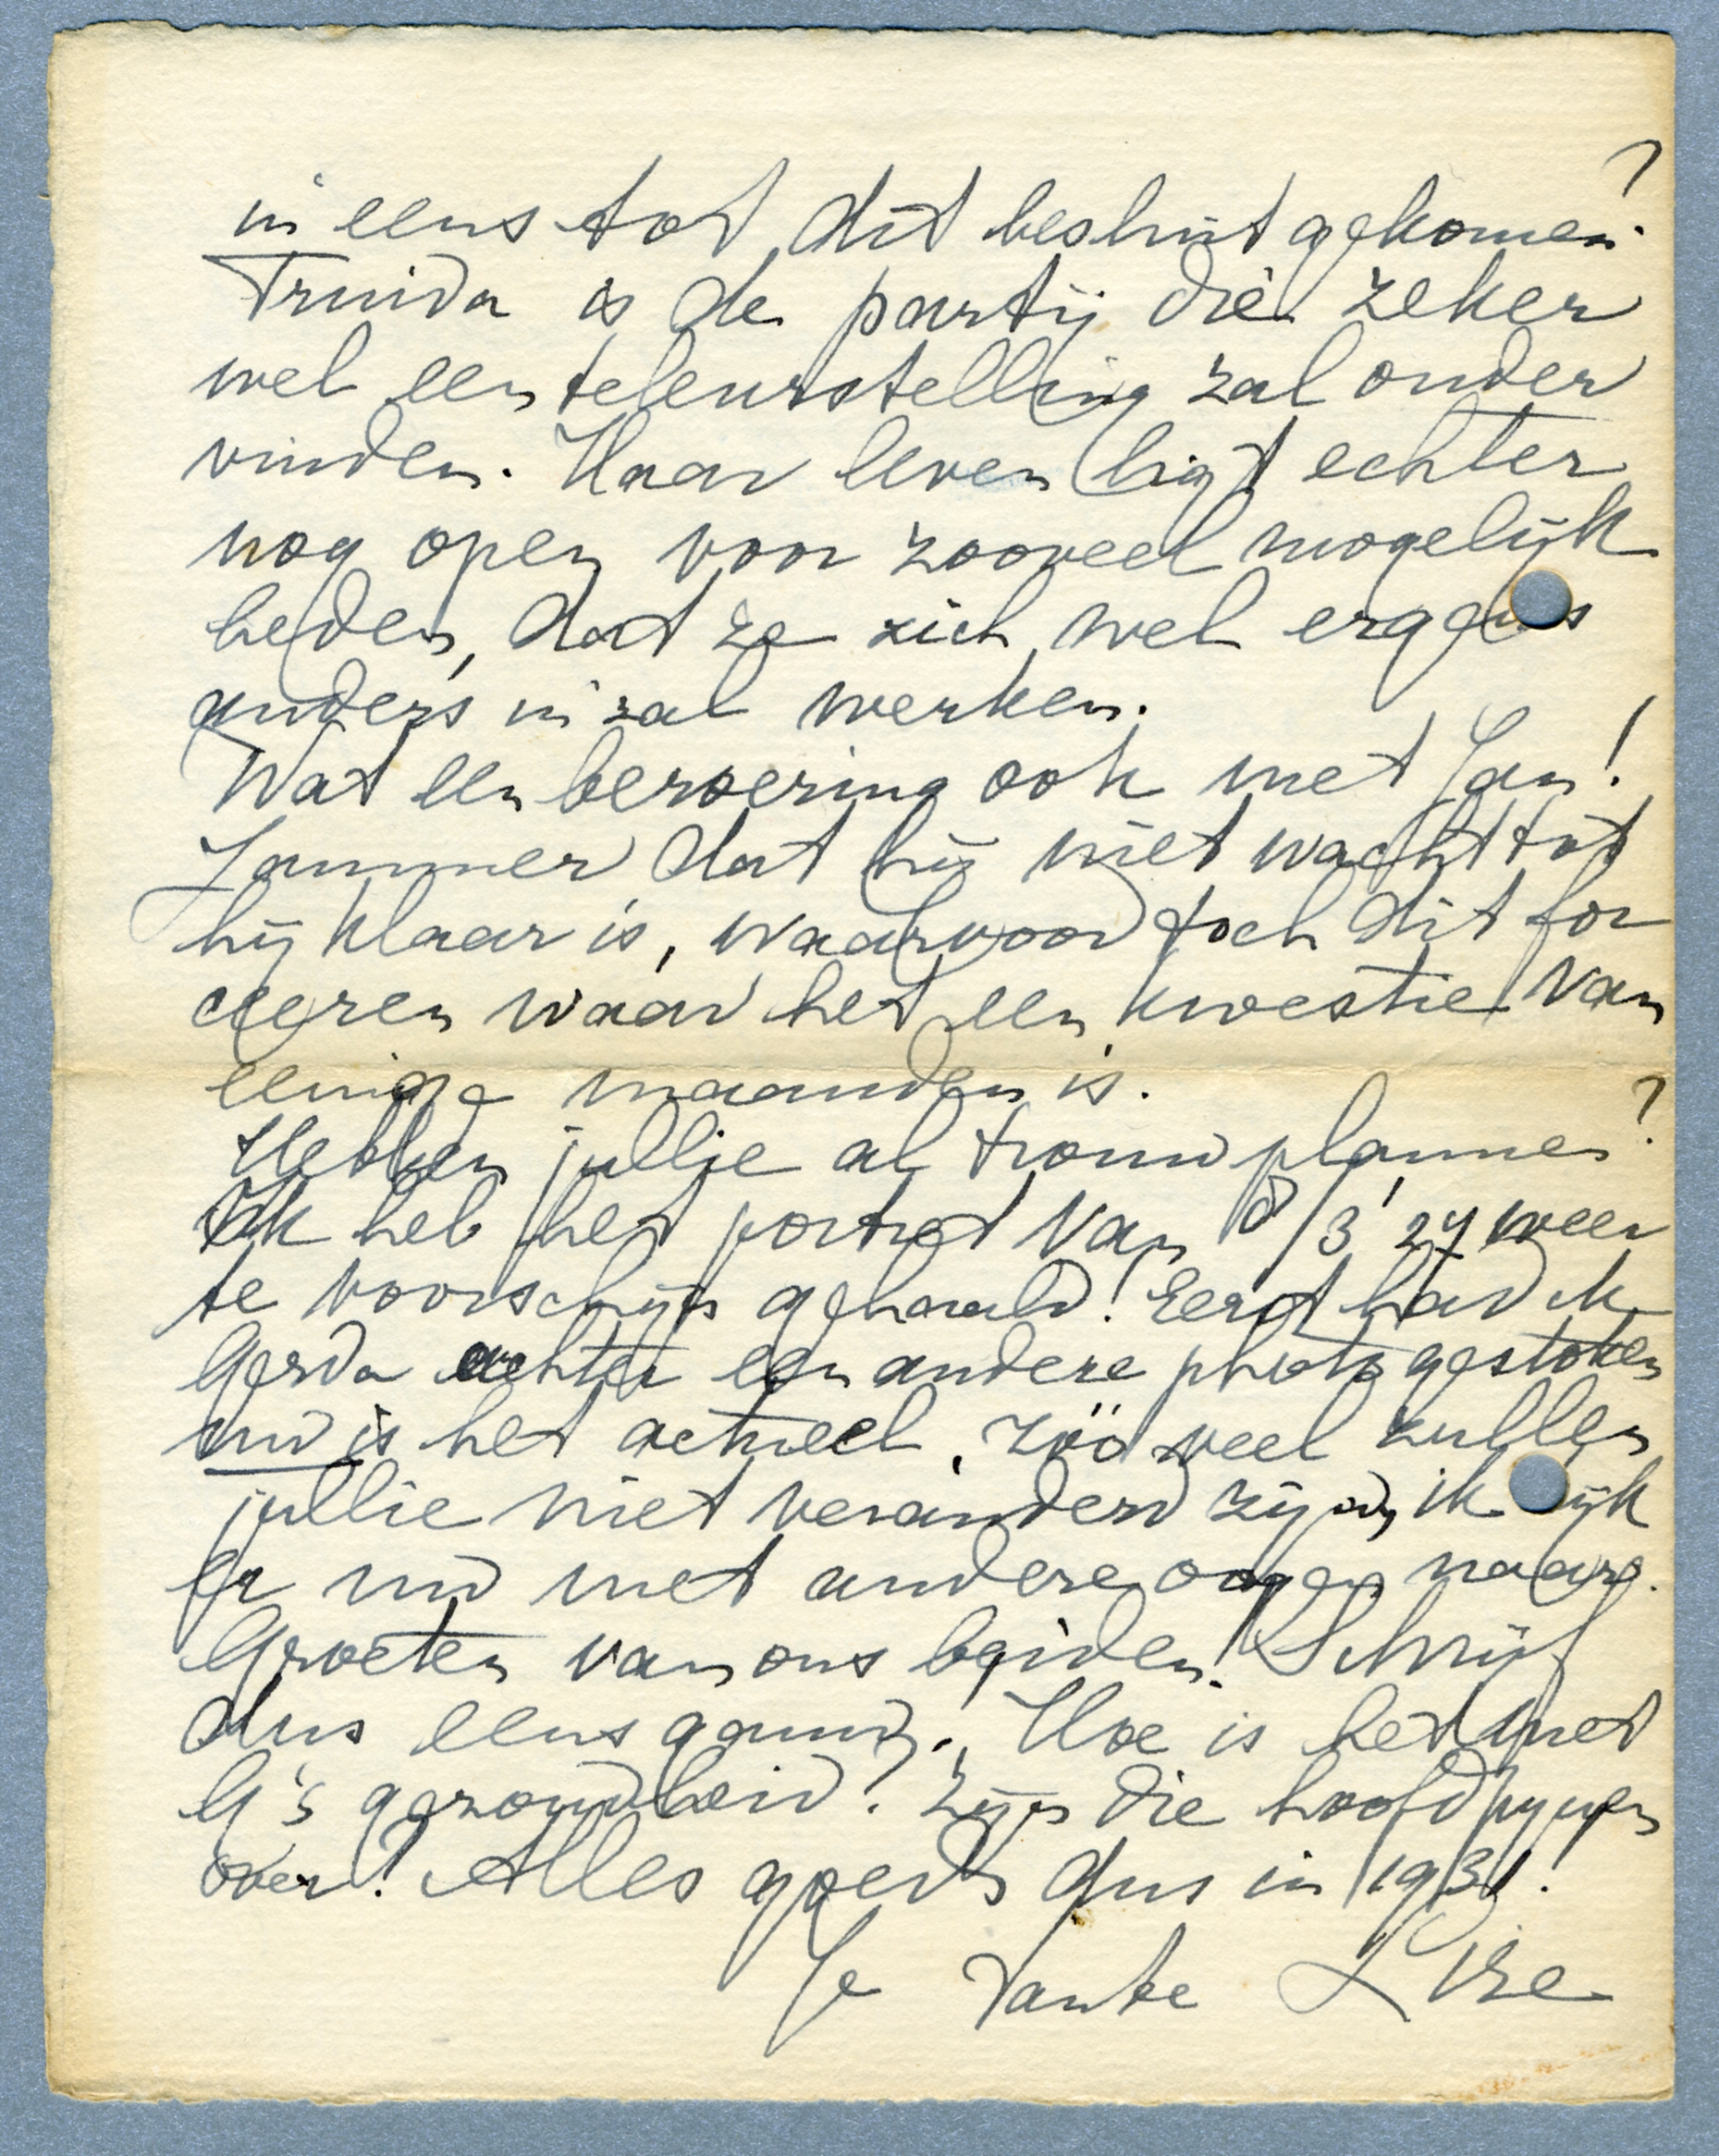 in eens tot dit besluit gekomen?
Truida is de partij die zeker
wel een teleurstelling zal onder
vinden. Haar leven ligt echter
nog open voor zooveel mogelijk
heden, dat ze zich wel ergens
anders in zal werken.
Wat een beroering ook met Jan!
Jammer dat hij niet wacht tot
hij klaar is, waarvoor toch dit for
ceeren waar het een kwestie van
eenige maanden is.
Hebben jullie al trouwplannen?
Ik heb het portret van 8/3 '27 weer
te voorschijn gehaald! Eerst had ik
Gerda achter een andere photo gestoken
nu is het actueel. Zóó veel zullen
jullie niet veranderd zijn, ik kijk
er nu met andere oogen naar.
Groeten van ons beiden! Schrijf
dus eens gauw. Hoe is het met
G's gezondheid? Zijn die hoofdpijnen
over? Alles goeds dus in 1931!
Je Tante Lize